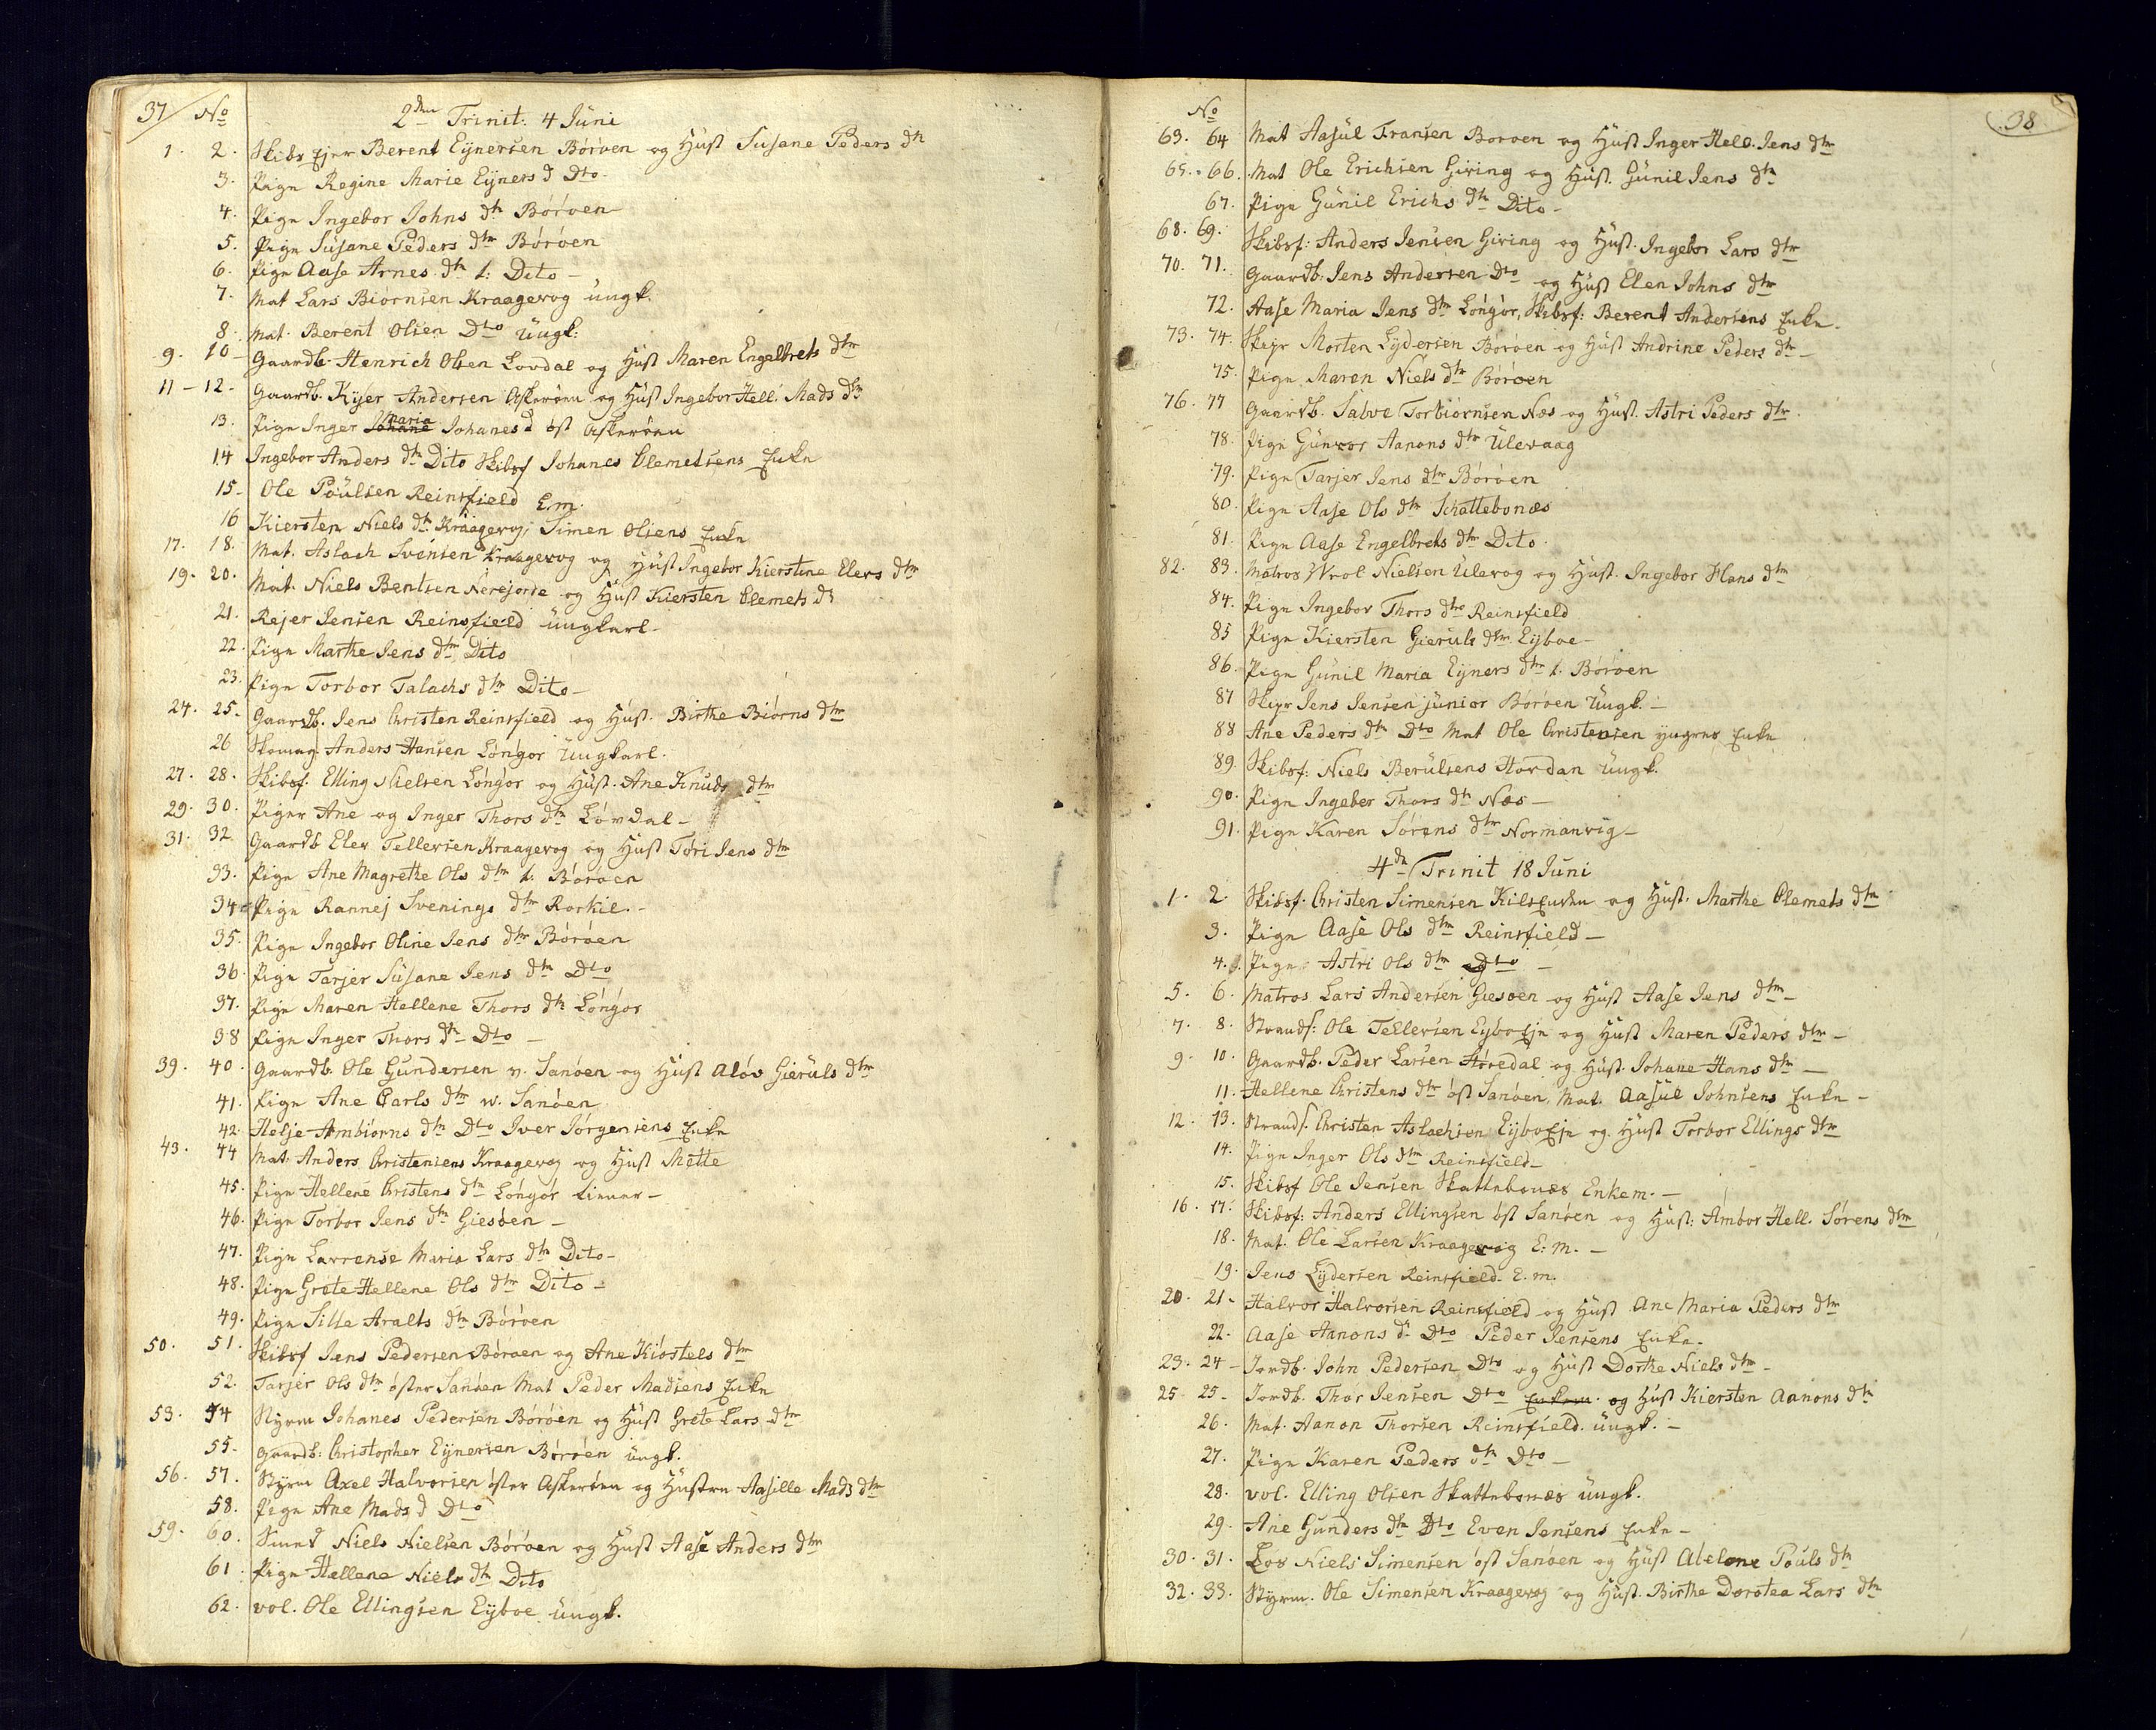 37 No 2den Trinit. 4 Juni
1. 2. Skibs Ejer Berent Eynersen Börøen og Hust Susane Peders dtr
3. Pige Regine Marie Eyners d Dto
4. Pige Ingebor Johns dtr Börøen
5. Pige Susane Peders dtr Börøen
6. Pige Aase Arnes dtr l: Dito
7. Mat Lars Biörnsen Kraagevog ungk.
8. Mat. Berent Olsen Dto ungk:
9. 10 Gaardb. Henrich Olsen Lovdal og Hust Maren Engelbrets dtr
11 - 12. Gaardb. Kijer Andersen Askerøen og Hust Ingebor Hell. Mads dtr
13. Pige Inger Maria Johanes d öst Askerøen
14 Ingebor Anders dtr Dito Skibsf Johanes Clemetsens Enke
15. Ole Poülsen Reinsfield E.m.
16 Kiersten Niels dtr Kraagevog, Simen Olsens Enke
17. 18. Mat. Aslach Svensen Kraagevog og Hust Ingebor Kierstine Elevs dtr
19. 20. Mat. Niels Bentsen Nerejorde og Hust Kiersten Clemets dr
21. Rejer Jensen Reinsfield ungkarl
22. Pige Marthe Jens dtr Dito
23. Pige Torbor Talachs dtr Dito
24. 25. Gaardb. Jens Christen Reinsfield og Hust. Birthe Biörns dtr
26 Skomag. Anders Hansen Löngör Ungkarl.
27. 28. Skibsf. Elling Nielsen Löngör og Hust. Ane Knuds dtr
29. 30. Piger Ane og Inger Thors dtr Lövdal
31. 32. Gaardb Elev Tellevsen Kraagevog og Hust Töri Jens dtr
33. Pige Ane Magrethe Ols dtr l: Börøen
34 Pige Rannej Svenings dtr Rorkil.
35. Pige Ingebor Oline Jens dtr Börøen
36. Pige Tarjer Susane Jens dtr Dto
37. Pige Maren Hellene Thors dtr Löngör
38 Pige Inger Thors dtr Dto
39. 40. Gaardb. Ole Gundersen v. Sanöen og Hust Alöv Gieruls dtr
41. Pige Ane Carls dtr w. Sanöen
42. Helje Ambiörns dtr Dto Iver Jörgensens Enke
43. 44 Mat. Anders Christensens Kraagevog og Hust Mette
45. Pige Hellene Christens dtr Löngör
46. Pige Torbor Jens dtr Giesöen
47. Pige Lavrense Maria Lars dtr Dito
48. Pige Grete Hellene Ols dtr Dito
49. Pige Sille Aralts dtr Börøen
50. 51. Skibsf Jens Pedersen Börøen og Ane Kiöstels dtr
52. Tarjer Ols dtr öster Sanöen Mat Peder Madsens Enke
53. 54 Styrm Johanes Pedersen Börøen og Hust Grete Lars dtr
55. Gaardb. Christopher Eynersen Börøen ungk.
56. 57. Styrm Axel Halvorsen öster Askerøen og Hustru Aasille Mads dtr
58. Pige Ane Mads d Dto
59. 60. Smed Niels Nielsen Börøen og Hust Aase Anders dtr
61. Pige Hellene Niels dtr Dito
62. vol. Ole Ellingsen Eyboe ungk.
No 38
63. 64 Mat Aasül Fransen Borøen og Hust Inger Hell. Jens dtr
65. 66. Mat Ole Erichsen Giving og Hust. Gunil Jens dtr
67. Pige Gunil Erichs dtr Dito
68. 69. Skibsf: Anders Jensen Giving og Hust. Ingebor Lars dtr
70. 71. Gaardb: Jens Andersen Dto og Hust Elen Johns dtr
72. Aase Maria Jens dtr Löngör, Skibsf: Berent Andersens Enke.
73. 74. Skipr Morten Lydersen Börøen og Hust Andrine Peders dtr
75. Pige Maren Niels dtr Börøen
76. 77 Gaardb. Salve Torbiörnsen Næs og Hust. Astri Peders dtr
78. Pige Gunvor Aanons dtr Ulevaag
79. Pige Tarjer Jens dtr Börøen
80. Pige Aase Ols dtr Schattebonæs
81. Pige Aase Engelbrets dtr Dito
82. 83. Matros Wrol Nielsen Ulevog og Hust. Ingebor Hans dtr
84. Pige Ingebor Thors dtr Reinsfield
85 Pige Kiersten Gieruls dtr Eyboe
86. Pige Gunil Maria Eyners dtr l. Börøen
87 Skipr Jens Jensen junior Börøen Ungk.
88 Ane Peders dtr Dto Mat Ole Christensen yngres Enke
89. Skibsf: Niels Berulsens Hovdan Ungk.
90. Pige Ingeber Thors dtr Næs
91. Pige Karen Sörens dtr Normanvig
4de Trinit 18 Juni
1. 2. Skibsf. Christen Simensen og Hust. Marthe Clemets dtr
3. Pige Aase Ols dtr Reinsfield
4. Pige Astri Ols dtr Dto
5. 6. Matros Lars Andersen Giesöen og Hust Aase Jens dtr
7. 8. Strands: Ole Tellevsen Eyboeje og Hust Maren Peders dtr
9. 10. Gaardb. Peder Larsen Hövedal og Hust. Johane Hans dtr
11. Hellene Christens dtr öst Sanöen, Mat. Aasül Johnsens Enke
12. 13. Strands. Christen Aslachsen Eyboeje og Hust Torbor Ellings dtr
14. Pige Inger Ols dtr Reinsfield
15. Skibsf Ole Jensen Skattebonæs Enkem.
16. 17. Skibsf: Anders Ellingsen öst Sanöen og Hust: Ambor Hell. Sörens dtr
18. Mat. Ole Larsen Kraagevog E. m.
19. Jens Lydersen Reinsfield. E. m.
20. 21 Halvor Halvorsen Reinsfield og Hust Ane Maria Peders dtr
22. Aase Aanons d. Dto Peder Jensens Enke.
23. 24 Jordb. John Pedersen Dto og Hust Dorthe Niels dtr
25. 25. Jordb. Thor Jensen Dto Enkem. og Hust Kiersten Aanons dtr
26. Mat. Aanon Thorsen Reinsfield. ungk.
27. Pige Karen Peders dtr Dto
28. vol. Elling Olsen Skattebonæs ungk.
29. Ane Gunders dtr Dto Even Jensens Enke
30. 31. Los Niels Simensen öst Sanöen og Hust Abelone Pouls dtr
32. 33. Styrm. Ole Simensen Kraagevog og Hust. Birthe Dorotea Lars dtr